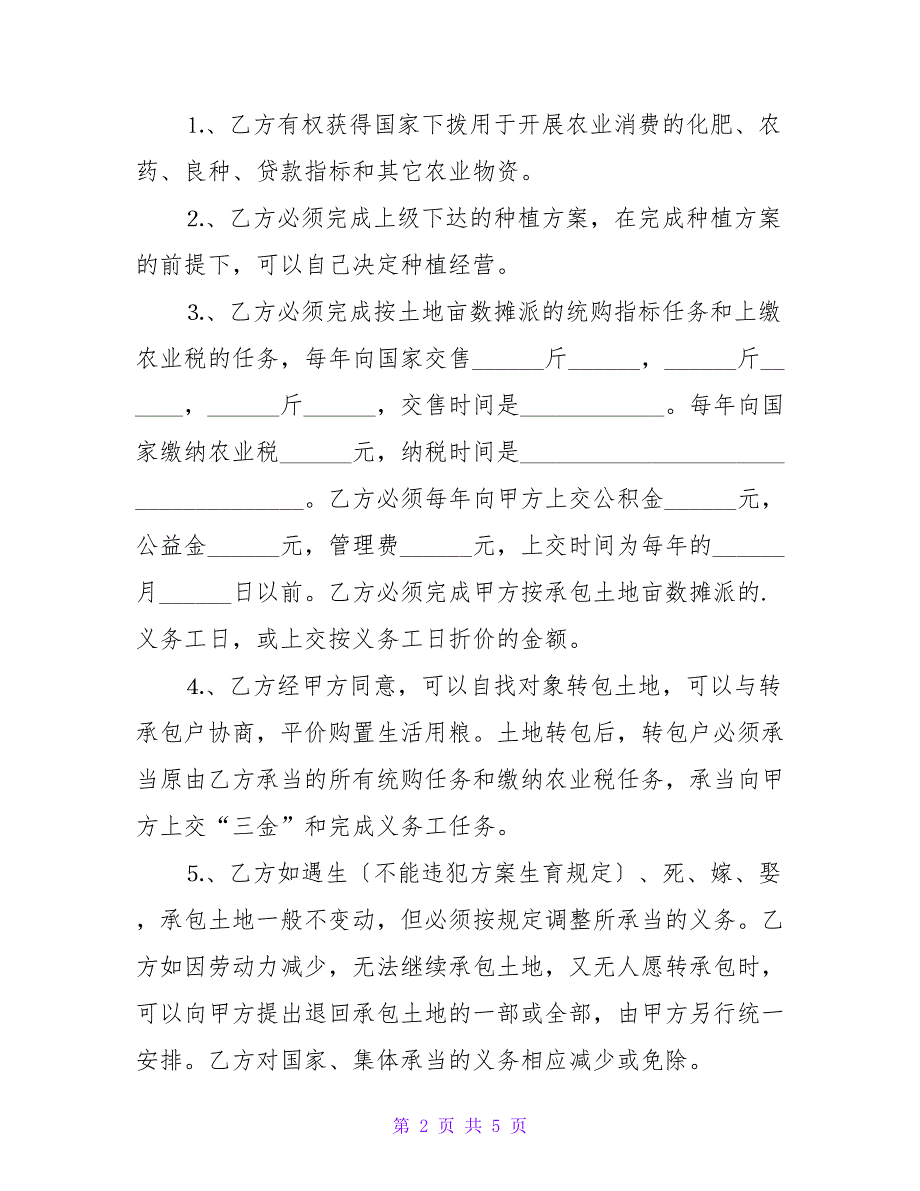 1.、乙方有权获得国家下拨用于开展农业消费的化肥、农
药、良种、贷款指标和其它农业物资。
2.、乙方必须完成上级下达的种植方案，在完成种植方案
的前提下，可以自己决定种植经营。
3.、乙方必须完成按土地亩数摊派的统购指标任务和上缴
农业税的任务，每年向国家交售______斤______，______斤__
____，______斤______，交售时间是____________。每年向国
家缴纳农业税______元，纳税时间是______________________
______________。乙方必须每年向甲方上交公积金______元，
公益金______元，管理费______元，上交时间为每年的______
月______日以前。乙方必须完成甲方按承包土地亩数摊派的.
义务工日，或上交按义务工日折价的金额。
4.、乙方经甲方同意，可以自找对象转包土地，可以与转
承包户协商，平价购置生活用粮。土地转包后，转包户必须承
当原由乙方承当的所有统购任务和缴纳农业税任务，承当向甲
方上交“三金”和完成义务工任务。
5.、乙方如遇生〔不能违犯方案生育规定〕、死、嫁、娶
，承包土地一般不变动，但必须按规定调整所承当的义务。乙
方如因劳动力减少，无法继续承包土地，又无人愿转承包时，
可以向甲方提出退回承包土地的一部或全部，由甲方另行统一
安排。乙方对国家、集体承当的义务相应减少或免除。
第 2 页 共 5 页